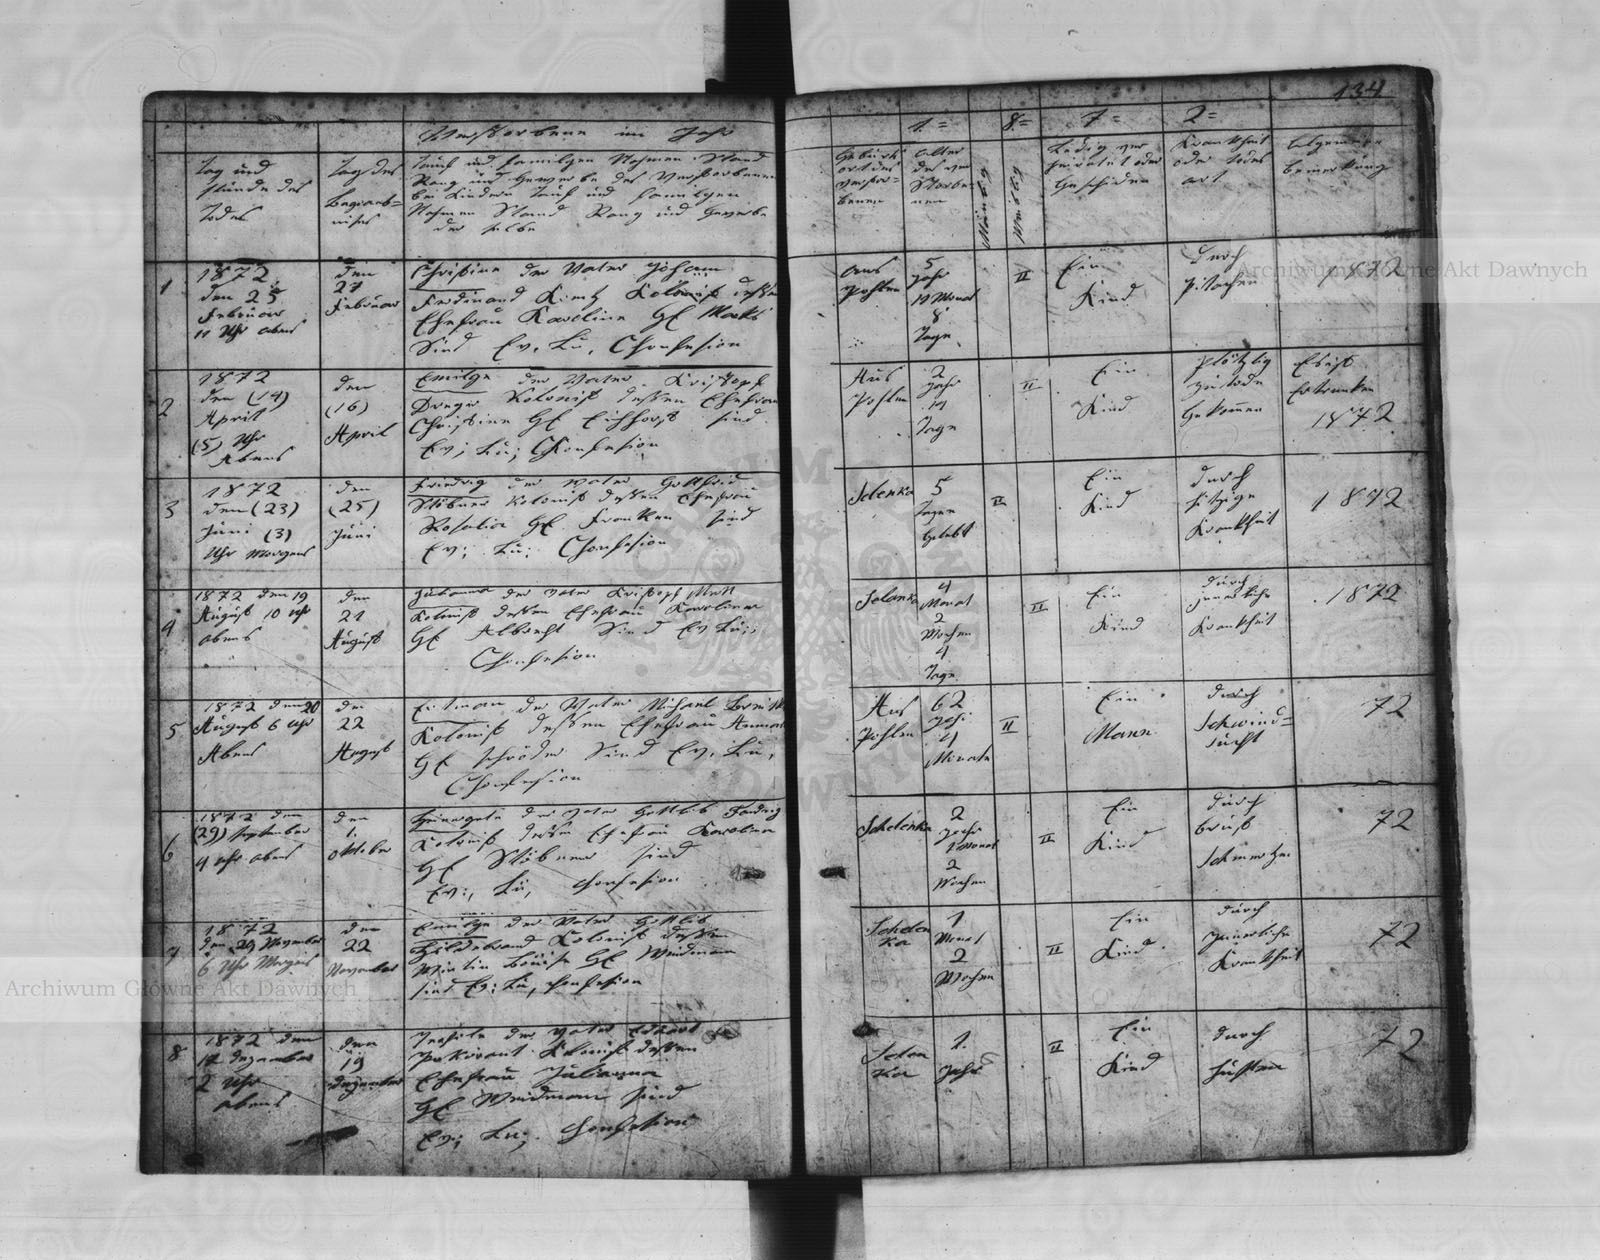 134
Verstorbene im Jahr
1.= 8.= 7= 2=
Tag und
stunde des
Todes
Tag des
Begraeb=
nises
Tauf und familgen Nahmen Stand
Rang und Gewerbe des Verstorbenen
bei Kindern Tauf und familgen
Nahmen Stand Rang und Gewerbe
der selbe
Geburts
ort des
verstor=
benen
alter
des ver
storbe=
nen
Mänlig
Weiblig
Ledig ver
heiratet oder
Geschiden
Krankheit
oder todes
art
Algemeine
bemerkung
1
1872
den 25
Februar
11 Uhr abens
den
27
Februar
Christine der Vater Johann
Ferdinand Kolonist dessen
Ehefrau Karoline
Sind Ev. Lu. Chonfesion
aus
Pohlen
5
Jahr
10 Monat
8
Tage
II
Ein
Kind
durch
1872
2
1872
den (14)
April
(5) Uhr
Abens
den
(16)
April
Emilge der Vater Kristoph
Dreger Kolonist dessen Ehefrau
Christine Ge Eichhorst sind
Ev; Lu; Chonfesion
Aus
Pohlen
2
Jahr
Tage
II
Ein
Kind
plötzlig
zu tode
gekommen
Es ist
Ertrunken
1872
3
1872
den (23)
Juni (3)
Uhr Morgens
den
(25)
Juni
Friedrig der vater Gottfried
Stöbner Kolonist dessen Ehefrau
Rosalia Ge. Franken sind
Ev; Lu; Chonfesion
Selenka
5
Tagen
Gelebt
II
Ein
Kind
durch
hitzige
Krankheit
1872
4
1872 den 19
August 10 Uhr
abens
den
21
August
Julianna der vater Kristoph
Kolonist dessen Ehefrau Karoline
Ge Albrecht Sind Ev Lu;
Chonfesion
Selenka
4
Monat
2
Wochen
4
Tage
II
Ein
Kind
durch
Krankheit
1872
5
1872 den 20
August 6 Uhr
Abens
den
22
August
der Vater Michael
Kolonist dessen Ehefrau
Ge Schröder Sind Ev. Lu,
Chonfesion
Aus
Pohlen
62
Jahr
4
Monate
II
Ein
Mann
durch
Schwind=
sucht
72
6
1872 den
(29) September
4 Uhr abens
den
1.
Oktober
der vater Gottlib
Kolonist dessen Ehefrau Karoline
Ge Stöbner sind
Ev:, Lu, Chonfesion
Schelenka
2
Jahr
1 Monat
2
Wochen
II
Ein
Kind
durch
brust
Schmertzen
72
7
1872
den 20 November
6 Uhr Morgens
den
22
November
Emilge der Vater Gottlib
Hildebrand Kolonist dessen
Wirtin Ge Weidmann
sind Ev: Lu, Chonfesion
Schelen
ka
1
Monat
2
Wochen
II
Ein
Kind
durch
Krankheit
72
8
1872 den
17 Dezember
2 Uhr
abens
den
19
Dezember
der Vater
Kolonist dessen
Ehefrau Julianna
Ge Weidmann sind
Ev; Lu; Chonfesion
Selen
ka
1.
Jahr
II
Ein
Kind
durch
husten
72
Archiwum Główne Akt Dawnych
Archiwum Główne Akt Dawnych